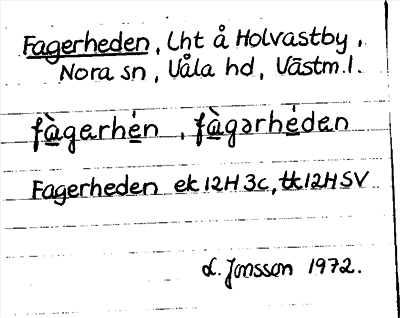 Fagerheden, Lht å Holvastby,
Nora sn, Våla hd, Västm.l.
fàgɑrhén, fàgərhédɑn
Fagerheden ek 12H 3c, tk 12H SV
L. Jonsson 1972.